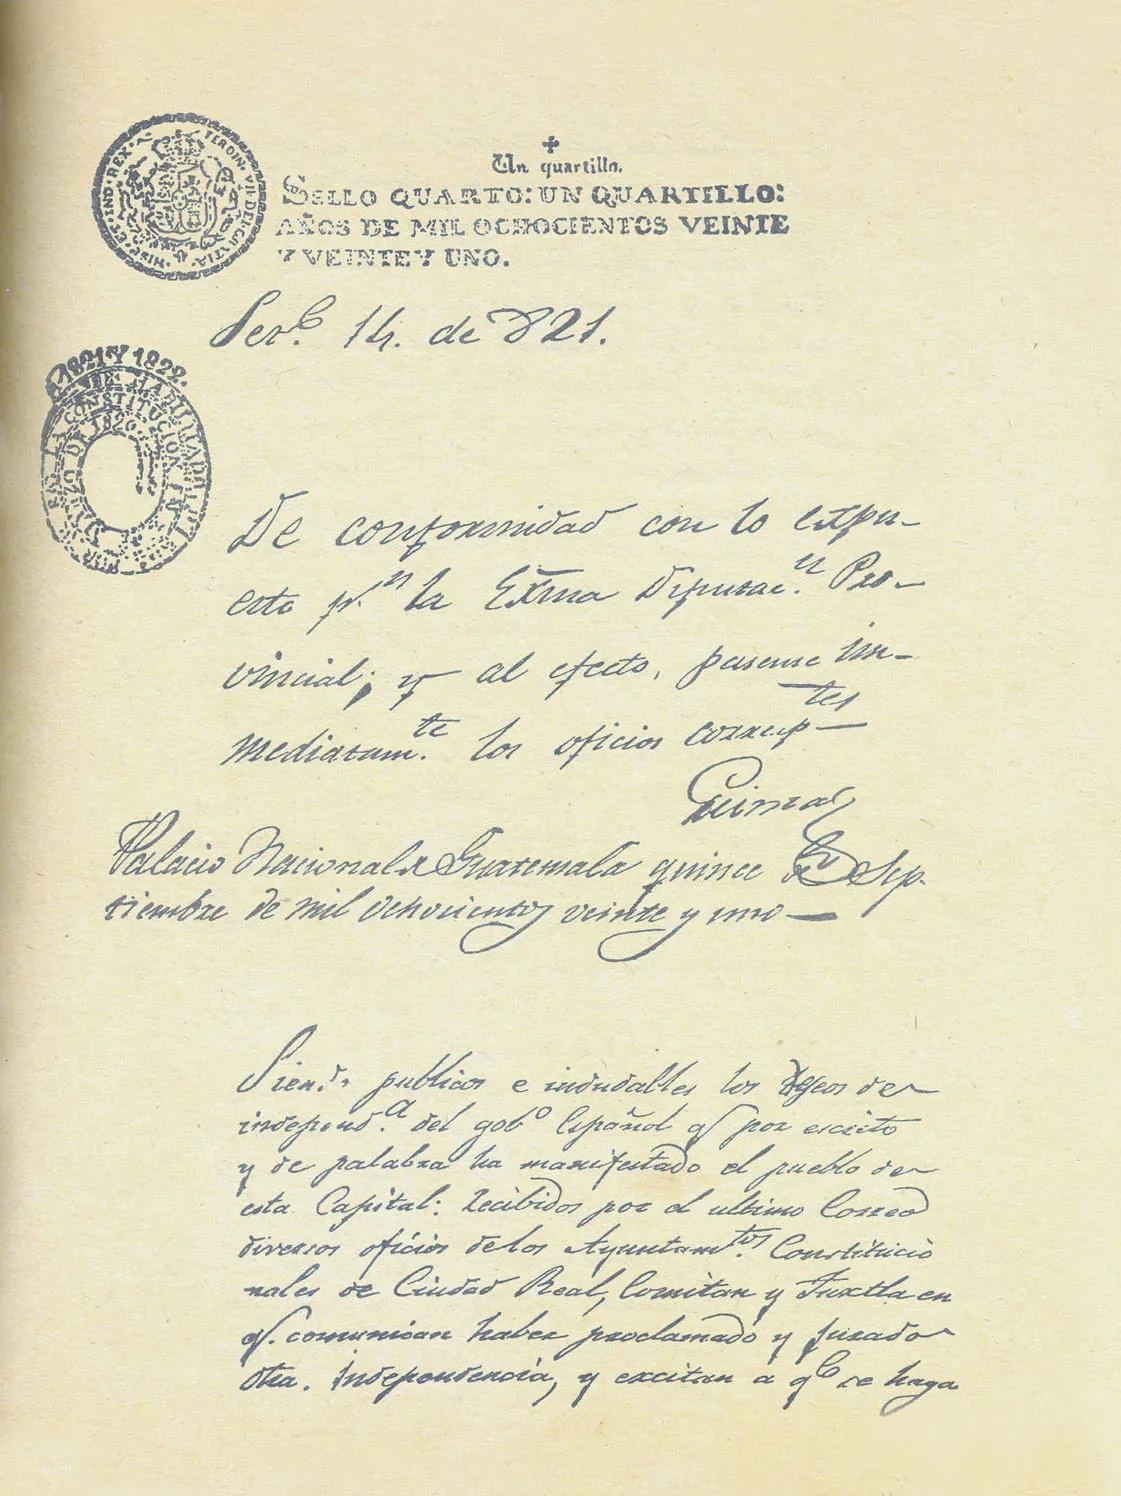 FERDIN. VII. DEI. GRATIA. HISP. ET. IND. REX.
Un quartillo.
SELLO QUARTO: UN QUARTILLO:
AÑOS DE MIL OCHOCIENTOS VEINTE
Y VEINTE Y UNO.
14. de 821.
1821 Y 1822.
HABILITADO
LA CONSTITUCION
DE 1820.
De conformidad con lo expu-
esto p.r la Exma Diputac.n Pro-
vincial; y al efecto, pasense im-
mediatam.te los oficios corresp.tes
Palacio Nacional de Guatemala quince de Sep-
tiembre de mil ochocientos veinte y uno
Siendo publicos e indudables los deseos de
independ.a del gob.o Español q. por escrito
y de palabra ha manifestado el pueblo de
esta Capital: recibidos por el ultimo Correo
diversos oficios de los Ayuntam.tos Constitucio
nales de Ciudad Real, Comitan y Tuxtla en
q. comunican haber proclamado y jurado
dha. Independencia, y excitan a q.e se haga